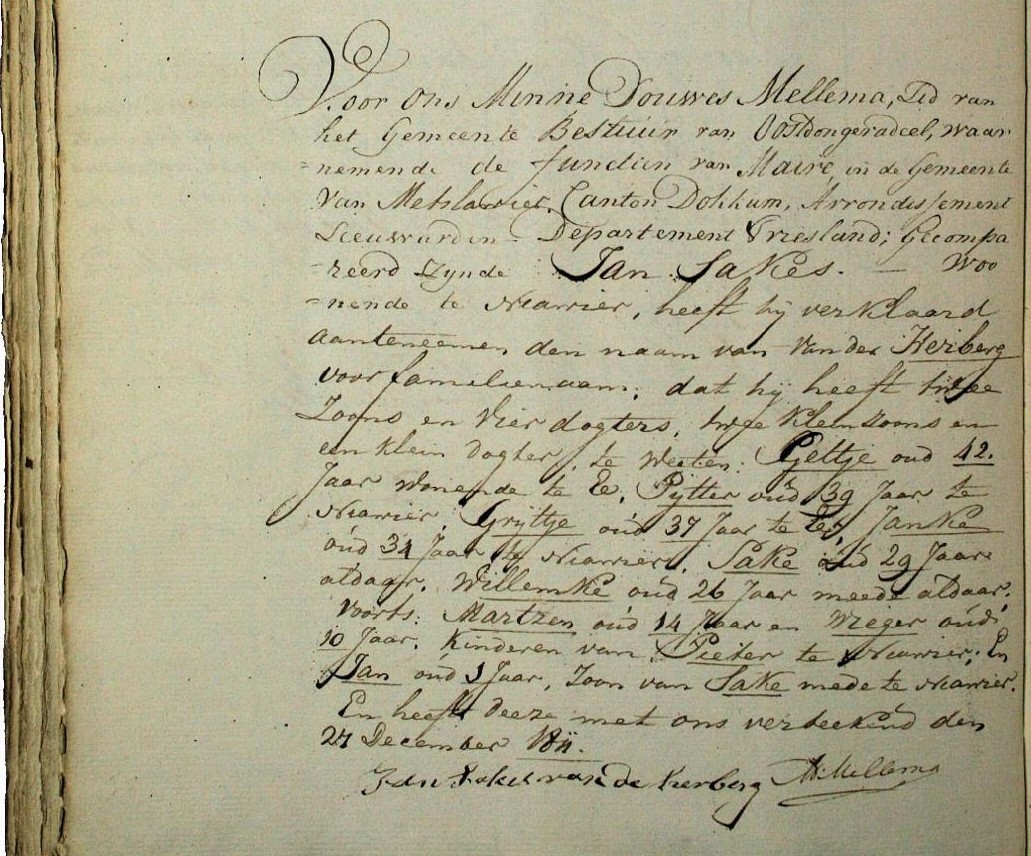 Voor Ons Minne Douwes Mellema, Lid van
het Gemeente Bestuur van Oostdongeradeel, waar
=nemende de functien van Maire in de Gemeente
Van Metslawier, Canton Dokkum, Arrondissement
Leeuwarden - Departement Vriesland; Gecompa
=reerd zynde Jan Sakes. — Woo
=nende te Niawier, heeft hy verklaard
aanteneemen den naam van van der Herberg
voor familienaam, dat hy heeft twee
Zoons en Vier dogters, twee kleinzoons en
een klein dogter, te weeten: Pyttje oud 42.
Jaar wonende te Ee, Pytter oud 39 Jaar te
Niawier, Grytje oud 37 Jaar te Ee, Janke
oud 34 Jaar te Niawier, Sake oud 29 Jaar
aldaar, Willemke oud 26 Jaar meede aldaar,
voorts: Martzen oud 14 Jaar en Wieger oud
10 Jaar, Kinderen van Pieter te Niawier; En
Jan oud 1 Jaar, Zoon van Sake mede te Niawier.
En heeft deeze met ons verteekend den
27 December 1811.
Jan Sakes van de Herberg MMellema